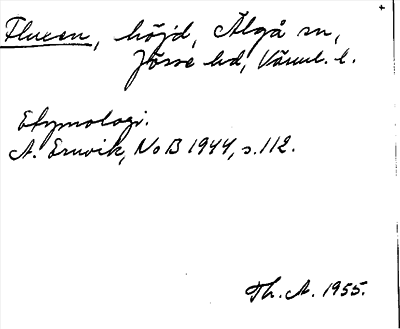 Flueen, höjd, Älgå sn,
Jösse hd, Värml. l.
Etymologi.
A. Ernvik, NoB 1944, s. 112.
Th. A. 1955.